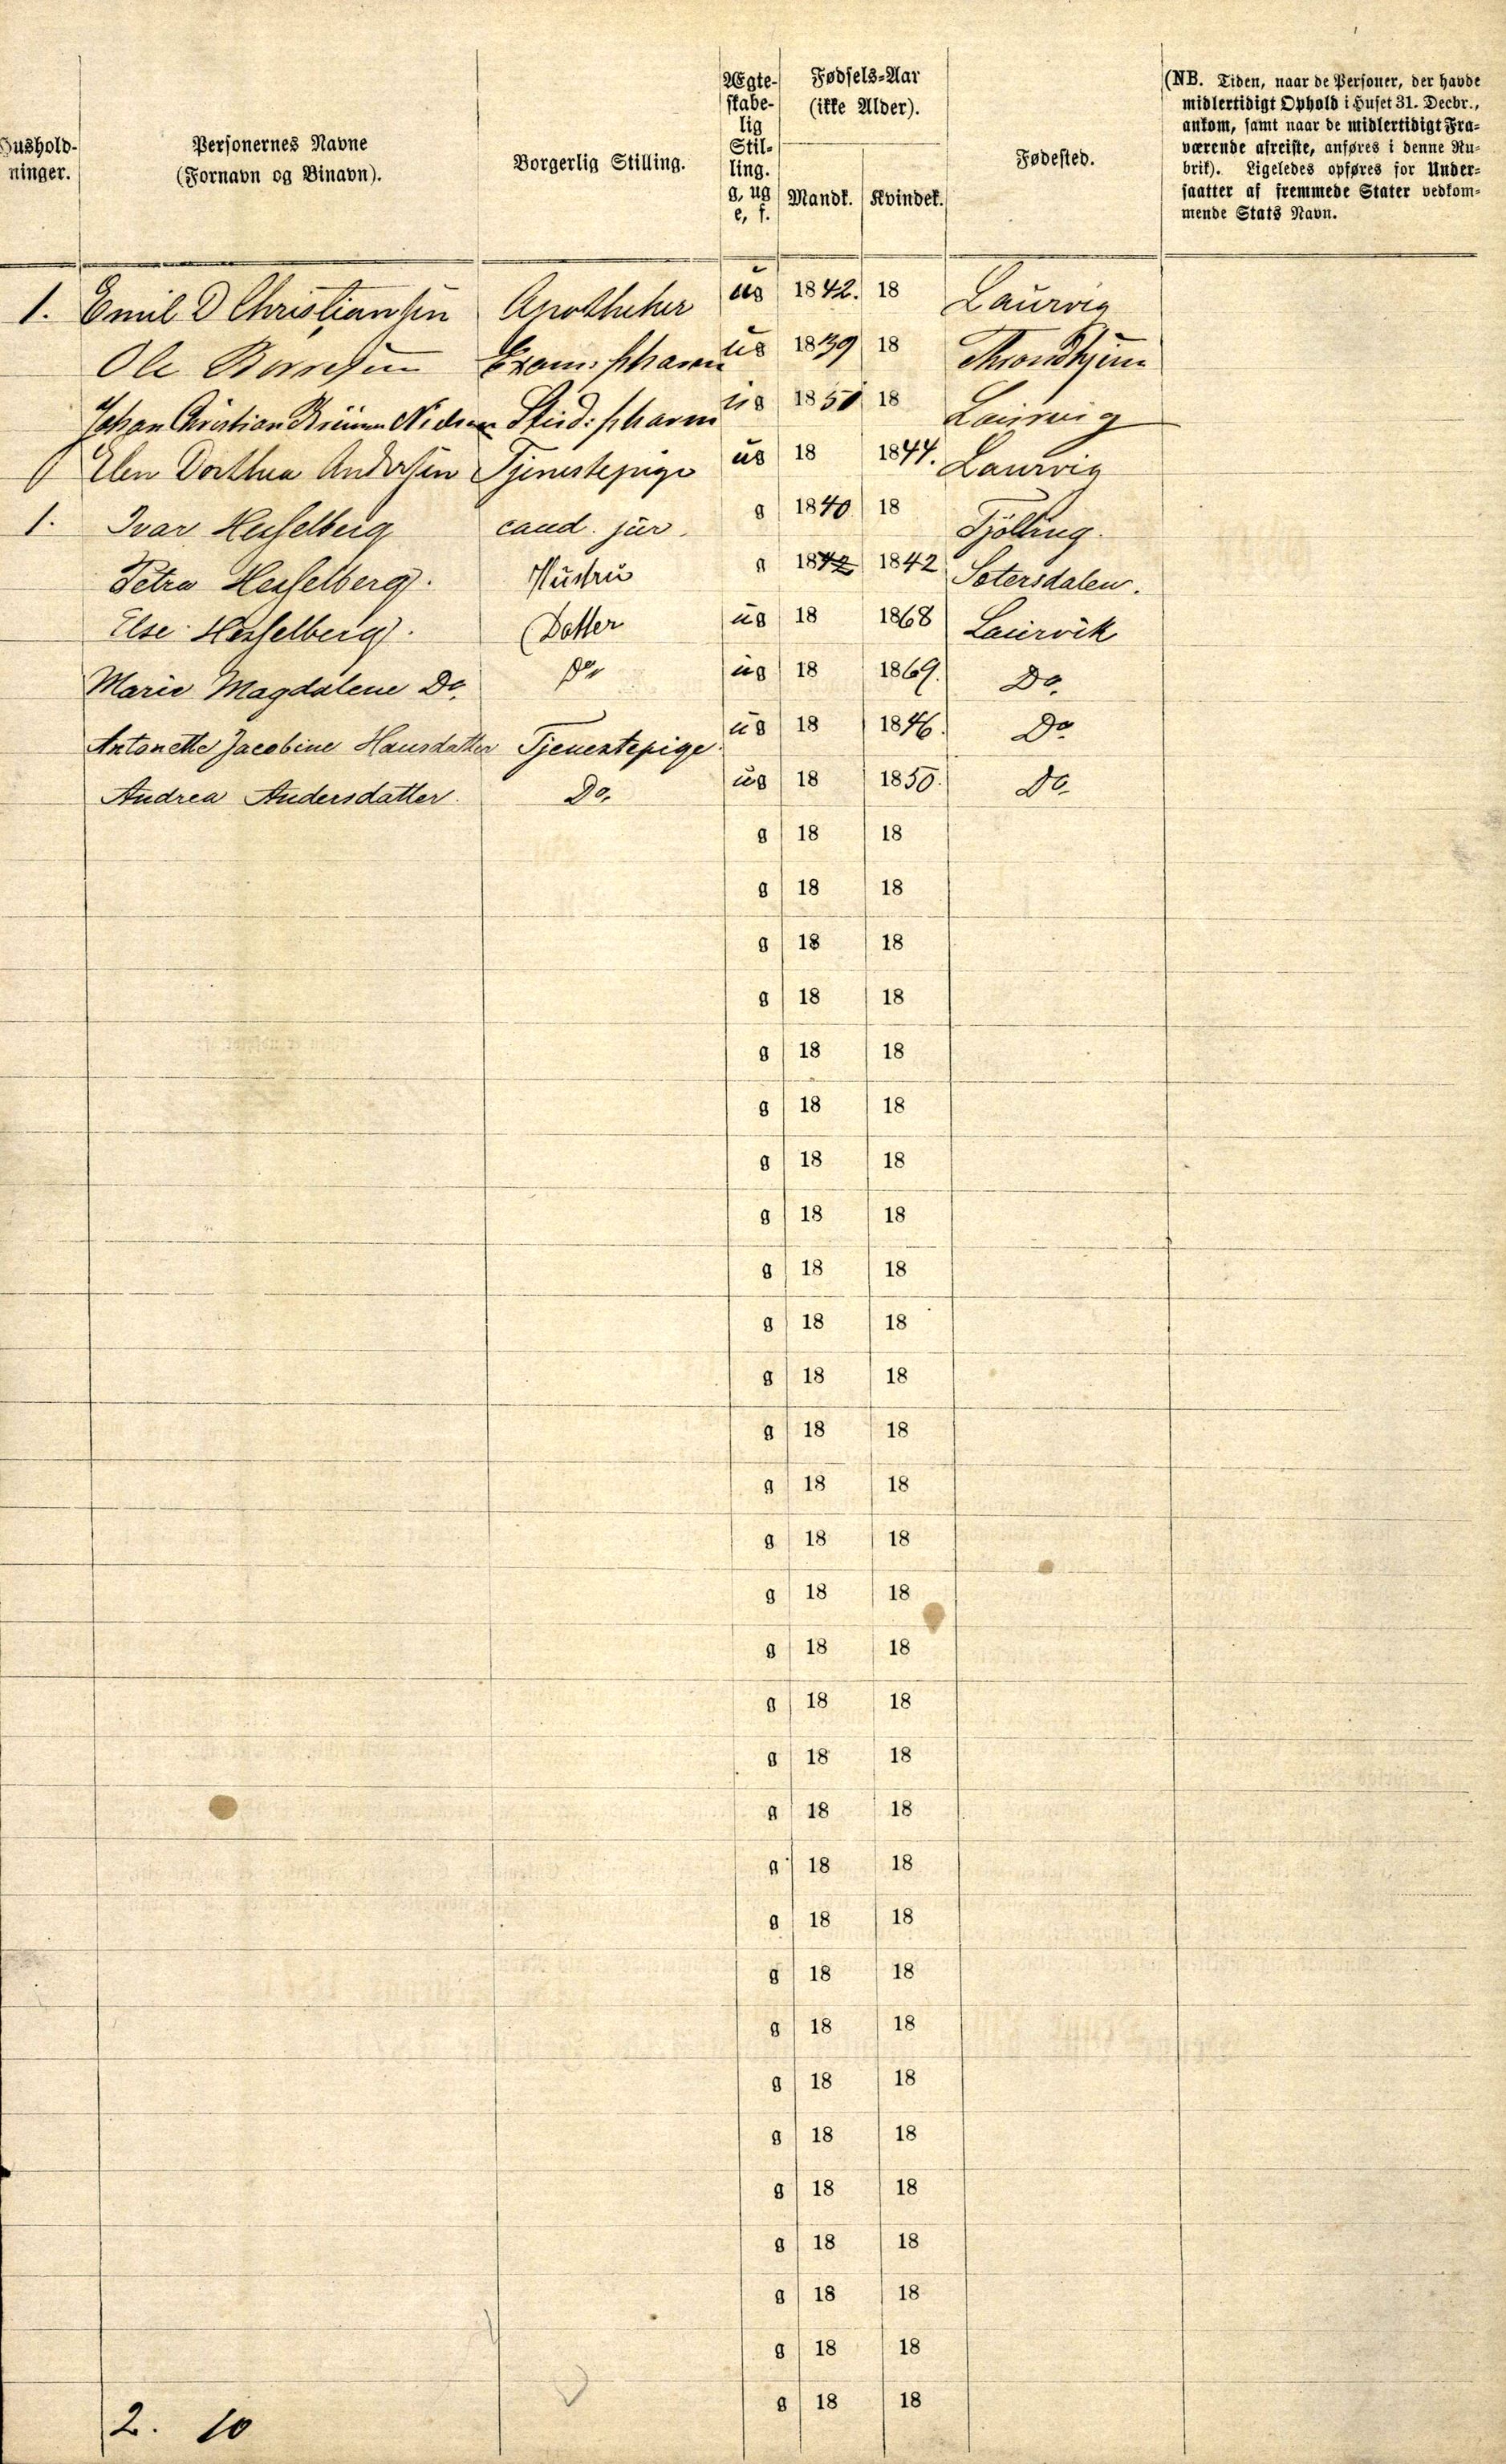 Hushold-
ninger.
Personernes Navne
(Fornavn og Binavn).
Borgerlig Stilling.
Ægte-
skabe-
lig
Stil-
ling.
g, ug
e, f.
Fødsels-Aar
(ikke Alder).
Mandk. Kvindek.
Fødested.
(NB. Tiden, naar de Personer, der havde
midlertidigt Ophold i Huset 31. Decbr.,
ankom, samt naar de midlertidigt Fra-
værende afreiste, anføres i denne Ru-
brik). Ligeledes opføres for Under-
saatter af fremmede Stater vedkom-
mende Stats Navn.
1. Emil D Christiansen Apotheker ug 1842. 18 Laurvig
Ole Exam: pharm ug 1839 18 Throndhjem
Johan Christian Nielsen Stud: pharm ug 1850 18 Laurvig
Elen Dorthea Andersen Tjenestepige ug 18 1844. Laurvig
1. Ivar Hesselberg cand. jur. g 1840 18 Tjølling.
Petra Hesselberg. Hustru g 1842 1842 Setersdalen.
Else Hesselberg. Datter ug 18 1868 Laurvik
Marie Magdalene Do. Do. ug 18 1869. Do.
Antonette Jacobine Hansdatter Tjenestepige. ug 18 1846. Do.
Andrea Andersdatter. Do. ug 18 1850. Do.
g 18 18
g 18 18
g 18 18
g 18 18
g 18 18
g 18 18
g 18 18
g 18 18
g 18 18
g 18 18
g 18 18
g 18 18
g 18 18
g 18 18
g 18 18
g 18 18
g 18 18
g 18 18
g 18 18
g 18 18
g 18 18
g 18 18
g 18 18
g 18 18
g 18 18
g 18 18
g 18 18
g 18 18
g 18 18
g 18 18
2. 10